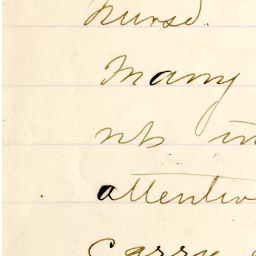 nurse.
Many
nts in
attentio
carry